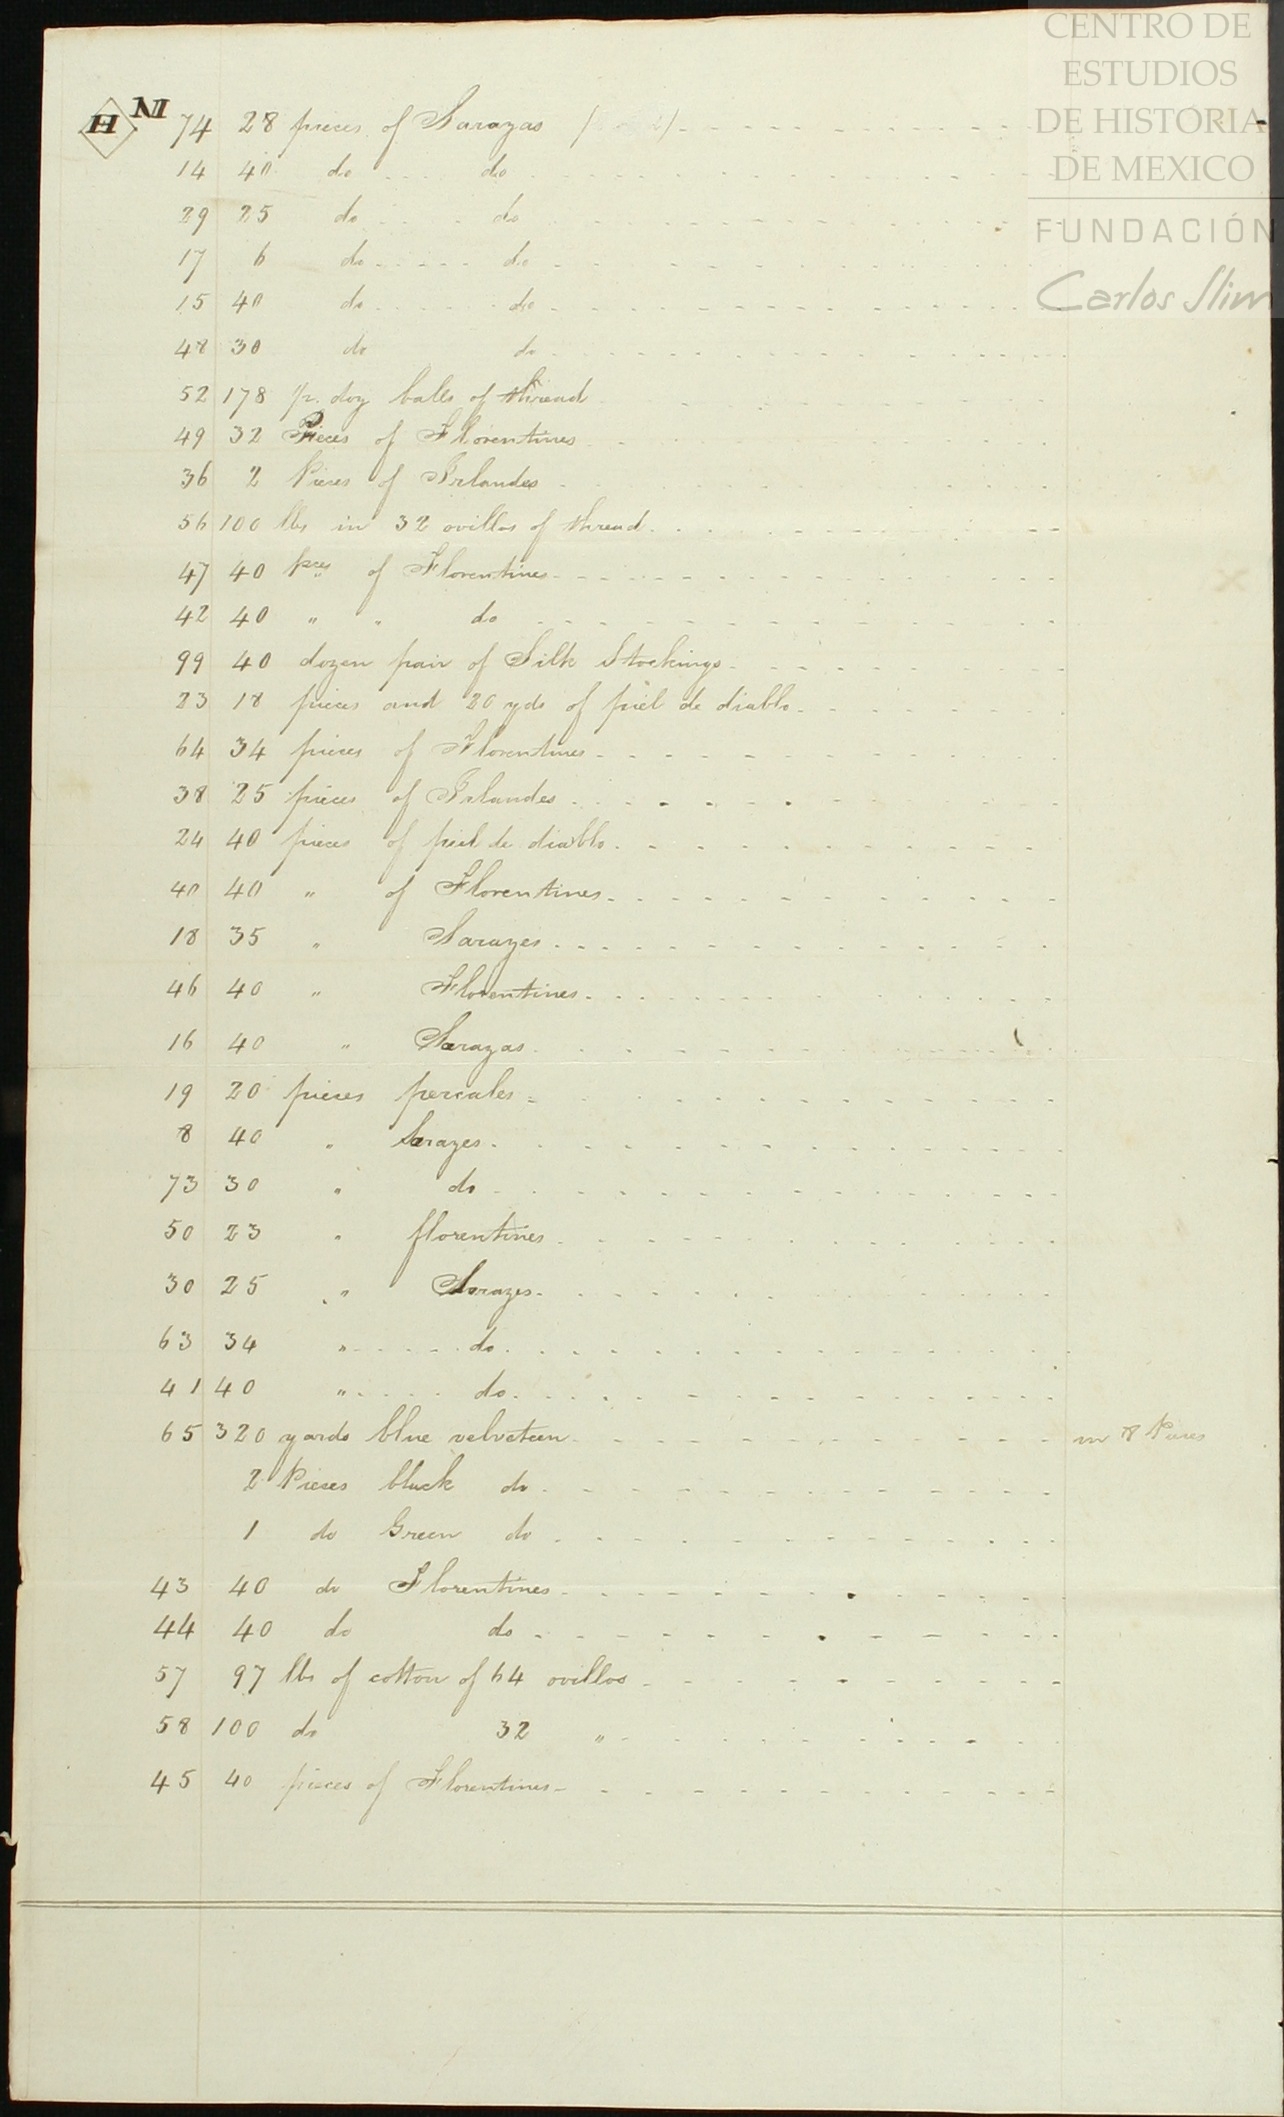 CENTRO DE
ESTUDIOS
DE HISTORIA
DE MEXICO
FUNDACIÓN
Carlos Slim
H M 74 28 pieces of Sarazas
14 40 do do
29 25 do do
17 6 do do
15 40 do do
48 30 do do
52 178 1/2 doz balls of thread
49 32 Pieces of Florentines
36 2 Pieses of Irlandes
56 100 lbs in 32 ovillos of thread
47 40 pces of Florentines
42 40 " " do
99 40 dozen pair of Silk Stockings
23 18 pieces and 20 yds of piel de diablo
64 34 pieces of Florentines
38 25 pieces of Irlandes
24 40 pieces of piel de diablo
40 40 " of Florentines
18 35 " Sarazes
46 40 " Florentines
16 40 " Sarazas
19 20 pieses percales
8 40 " Sarazes
73 30 " do
50 23 " florentines
30 25 " Sarazes
63 34 " do
41 40 " do
65 320 yards blue velveteen in 8 Pieses
2 Pieses black do
1 do Green do
43 40 do Florentines
44 40 do do
57 97 lbs of cotton of 64 ovillos
58 100 do 32 "
45 40 pieces of Florentines